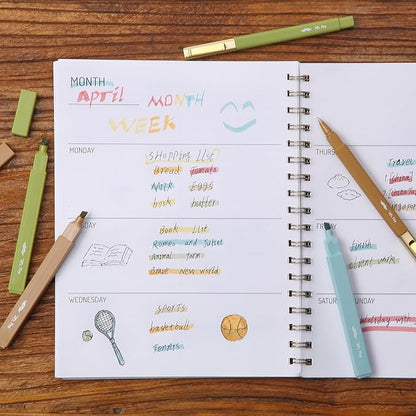 MONTH
April
MONTH
WEEK
MONDAY
[SHOPPING LIST]
Bread Tomato
Milk Eggs
book butter
DAY
Book List
Romeo and Juliet
Animal farm
Brave new world
WEDNESDAY
SPORTS
basketball
Tennis
THURSDAY
Travel
FRIDAY
Finish
client work
SATURDAY SUNDAY
Holiday with